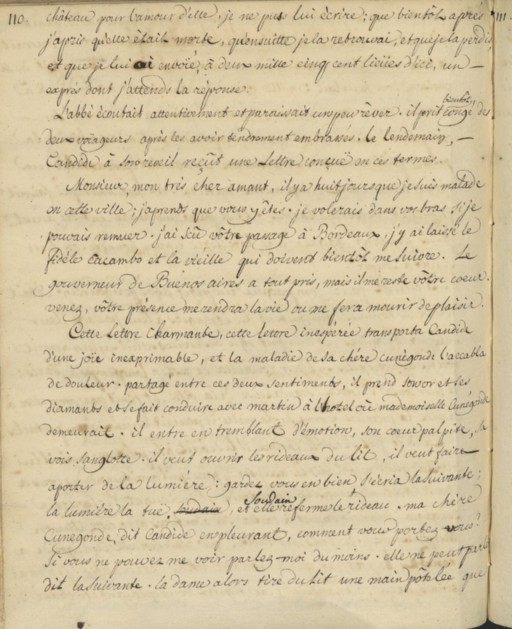 110.
château pour l'amour d'elle, je ne pus lui écrire; que bientôt après
j'apris qu'elle était morte, qu'ensuitte je la retrouvai, et que je la perdis
et que je lui ai envoïé à deux mille cinq cent lieües d'ici, un
exprés dont j'attends la réponse.
L'abbé écoutait attentivement et paraissait un peu rêver. il prit bientôt congé des
deux voiageurs après les avoir tendrement embrassés. Le lendemain,
Candide à son reveil reçut une Lettre conçue en ces termes.
Monsieur, mon très cher amant, il y a huit jours que je suis malade
en cette ville; j'aprends que vous y êtes. je volerais dans vos bras si je
pouvais remuer. j'ai sçû vôtre passage à Bordeaux, j'y ai laissé le
fidèle Cacambo et la vieille qui doivent bientôt me suivre. Le
gouverneur de Buenos aires a tout pris, mais il me reste vôtre coeur.
venez, vôtre présence me rendra la vie ou me fera mourir de plaisir.
Cette lettre charmante, cette lettre inespérée transporta Candide
d'une joïe inexprimable, et la maladie de sa chére Cunégonde l'accabla
de douleur. partagé entre ces deux sentiments, il prend son or et ses
diamants et se fait conduire avec martin à l'hotel où mademoiselle Cunégonde
demeurait. il entre en tremblant d'émotion, son coeur palpite, sa
voix sanglotte. il veut ouvrir les rideaux du lit, il veut faire
aporter de la lumière: gardez vous en bien s'écria la suivante;
la lumière la tuë, soudain et elle referme le rideau. ma chère
Cunegonde, dit Candide en pleurant, comment vous portez vous?
si vous ne pouvez me voir parlez-moi du moins. elle ne peut parler
dit la suivante. la dame alors tire du lit une main potelée que